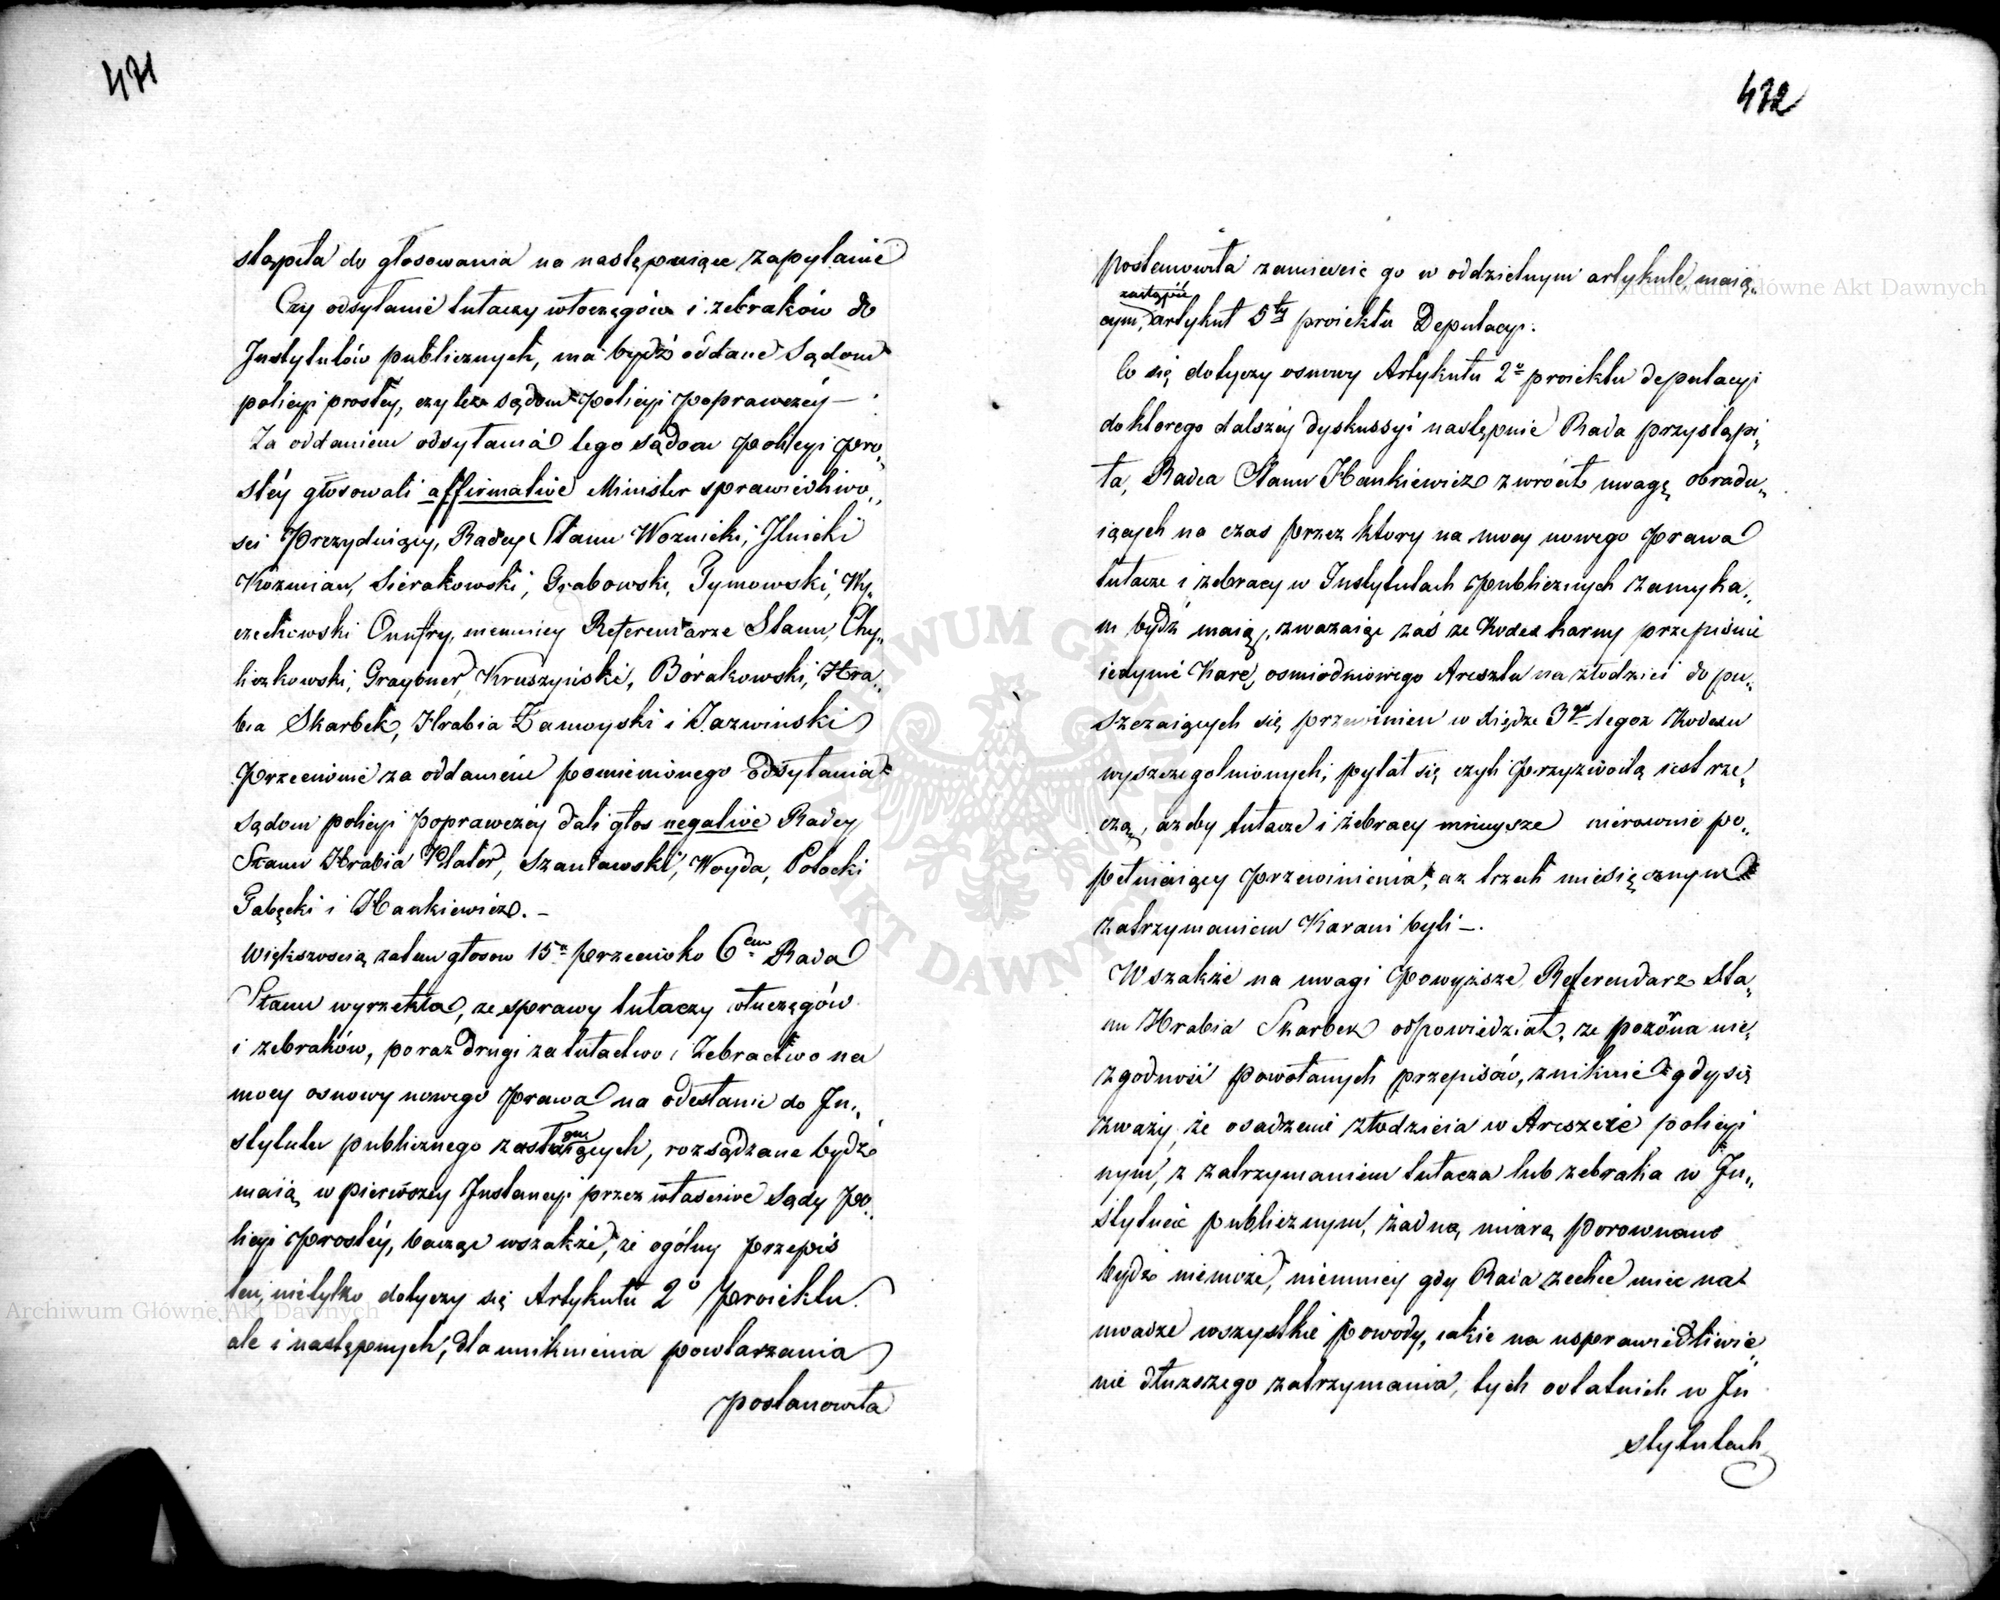 471
stąpiła do głosowania na następuiące zapytanie
Czy odsyłanie tułaczy włoczęgów i żebraków do
Instytutów publicznych, ma bydź oddane Sądom
policyi prostéy, czy też sądom policyi poprawczéy —
Za oddaniem odsyłania tego sądom policyi pro„
stéy głosowali affirmative Minister sprawiedliwo„
ści Prezyduiący, Radcy Stanu Woznicki, Ilnicki
Kozmian, Sierakowski, Grabowski, Tymowski, Wy„
czechowski Onufry, niemniey Referendarze Stanu, Chy„
liczkowski, Graybner, Kruszyński, Borakowski, Hra„
bia Skarbek, Hrabia Zamoyski i Jazwiński
Przeciwnie za oddaniem pomienionego odsyłania
sądom policyi poprawczéy dali głos negative Radcy
Stanu Hrabia Plater, Szaniawski, Woyda, Potocki
Gabęcki i Hankiewicz. —
Większością zatem głosow 15 przeciwko 6em Rada
Stanu wyrzekła, że sprawy tułaczy włuczęgów
i żebraków, po raz drugi za tułactwo i żebractwo na
mocy osnowy nowego Prawa na odesłanie do In„
stytutu publicznego zasługuiących, rozsądzane bydź
maią w pierwszey Instancyi przez właściwe Sądy po„
licyi prostéy, bacząc wszakże, że ogólny przepis
ten, nietylko dotyczy się Artykułu 2o Proiektu
ale i następnych, dla uniknienia powtarzania
postanowiła
432
postanowiła zamieścić go w oddzielnym artykule, maią„
zastąpić
cym, artykuł 5ty proiektu Deputacyi.
Co się dotyczy osnowy Artykułu 2o proiektu deputacyi
do ktorego dalszéy dyskussyi następnie Rada przystąpi„
ła, Radca Stanu Hankiewicz zwrócił uwagę obradu„
iących na czas przez ktory na mocy nowego Prawa
tułacze i żebracy w Instytutach publicznych zamyka„
ni bydź maią, zważaiąc zaś że Kodex karny przepisuie
iedynie Karę, osmiodniowego Aresztu na złodziei do pu„
szczaiących się przewinien w Xiędze 3ej tegoż Kodexu
wyszczegolnionych, pytał się czyli przyzwoitą iest rze„
czą, ażeby tułacze i żebracy mnieysze nierownie po„
pełniaiący przewinienia, aż trzech miesięcznym
zatrzymaniem Karani byli —.
Wszakże na uwagi powyższe Referendarz Sta„
nu Hrabia Skarbek odpowiedział, że pozorna nie„
zgodność powołanych przepisów, zniknie gdy się
zważy, że osadzenie złodzieia w Areszcie policyi
nym, z zatrzymaniem tułacza lub żebraka w In„
stytucie publicznym, żadną miarą porownane
bydź niemoże, niemniey gdy Rada zechce mieć na
uwadze wszystkie powody, iakie na usprawiedliwie„
nie dłuższego zatrzymania, tych ostatnich w In
stytutach